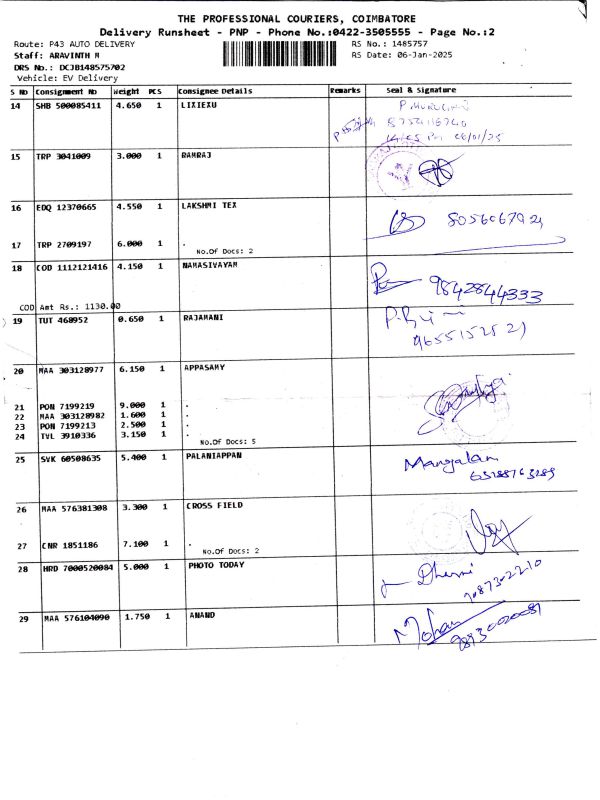 THE PROFESSIONAL COURIERS, COIMBATORE
Delivery Runsheet - PNP - Phone No.:0422-3505555 - Page No.:2
Route: P43 AUTO DELIVERY RS No.: 1485757
Staff: ARAVINTH R RS Date: 06-Jan-2025
DRS No.: DCJB148575702
Vehicle: EV Delivery
S No Consignment No Weight PCS Consignee Details Remarks Seal & Signature
14 SHB 500085411 4.650 1 LIXIEXU P. MURUGAN
15 TRP 3041009 3.000 1 RAMRAJ
16 EDQ 12370665 4.550 1 LAKSHMI TEX
17 TRP 2709197 6.000 1 .
No.Of Docs: 2
18 COD 1112121416 4.150 1 NAMASIVAYAM
9842844333
COD Amt Rs.: 1130.00
19 TUT 468952 0.650 1 RAJAMANI
20 MAA 303128977 6.150 1 APPASAMY
21 PON 7199219 9.000 1 .
22 MAA 303128982 1.600 1 .
23 PON 7199213 2.500 1 .
24 TVL 3910336 3.150 1 .
No.Of Docs: 5
25 SVK 60508635 5.400 1 PALANIAPPAN Mangalam
26 MAA 576381308 3.300 1 CROSS FIELD
27 CNR 1851186 7.100 1 .
No.Of Docs: 2
28 HRD 7000520084 5.000 1 PHOTO TODAY
29 MAA 576104090 1.750 1 ANAND Mohan